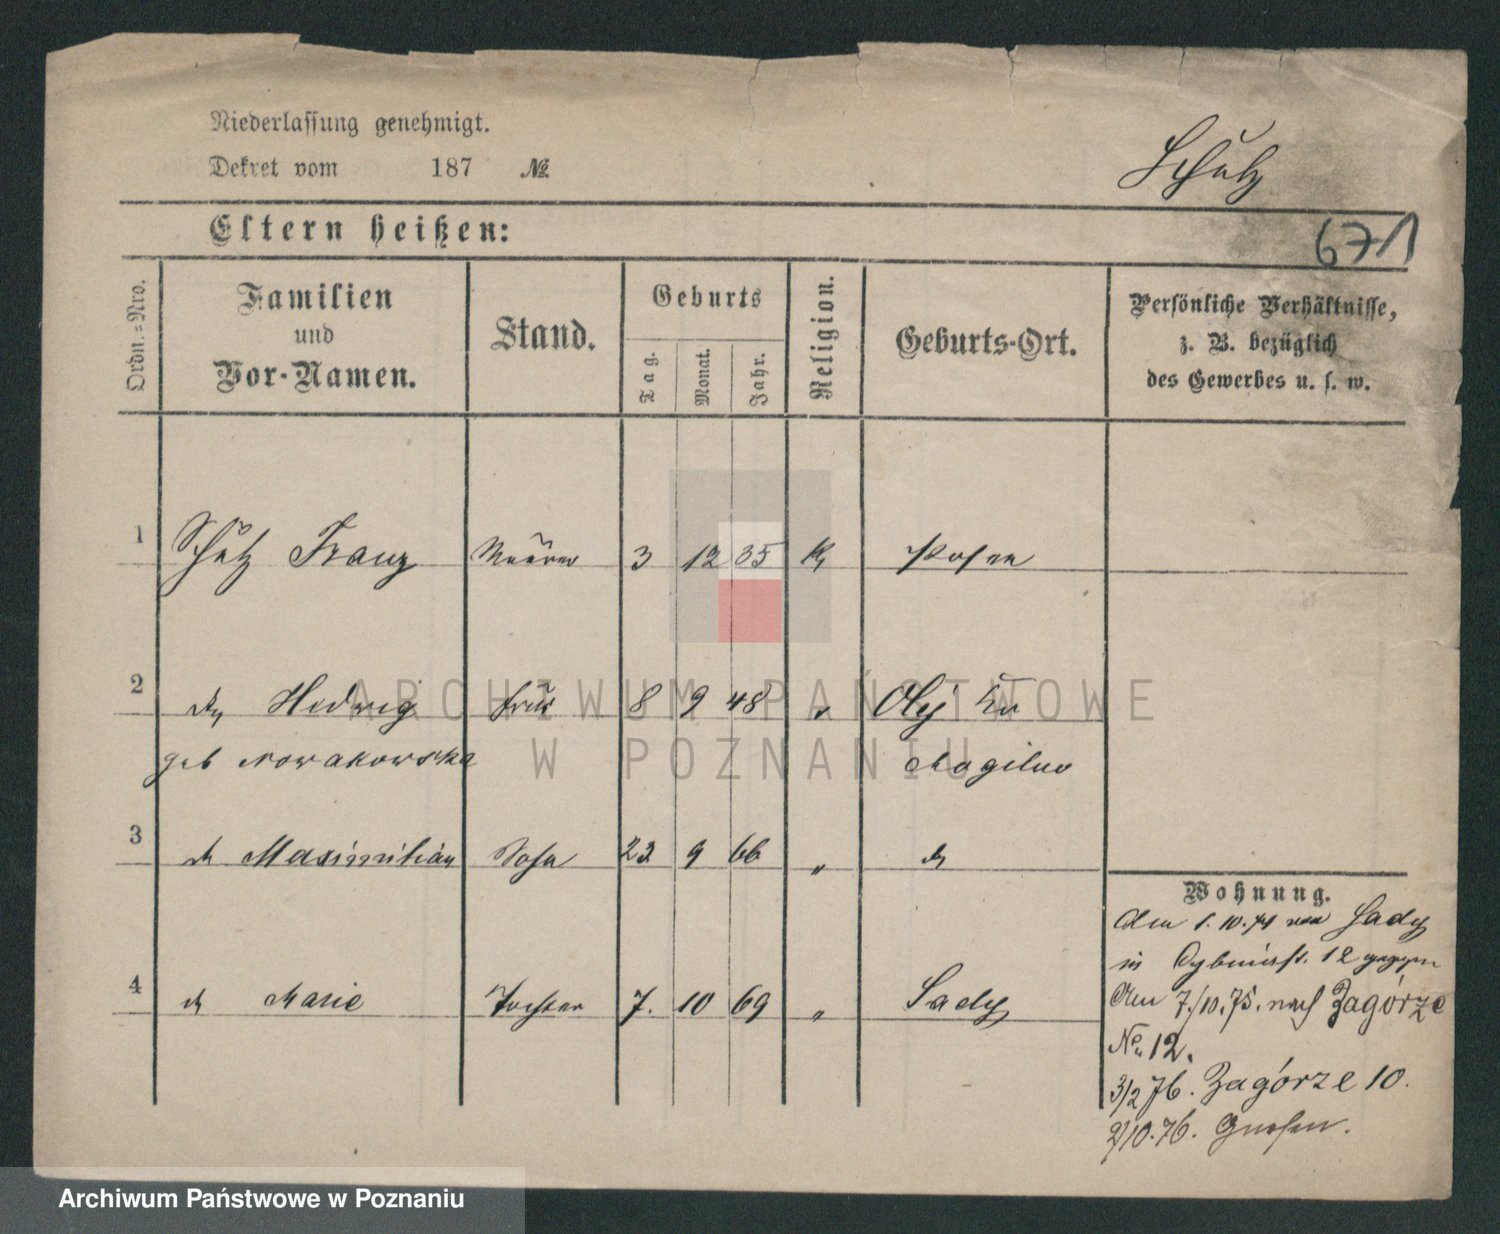 Niederlassung genehmigt.
Dekret vom 187 №
Schulz
Eltern heißen:
671
Ordn.-Nro.
Familien
und
Vor-Namen.
Stand.
Geburts
Tag.
Monat.
Jahr.
Religion.
Geburts-Ort.
Persönliche Verhältnisse,
z. B. bezüglich
des Gewerbes u. s. w.
1 Schulz Franz Maurer 3 12 35 K Posen
2 Hedwig Frau 8 9 48 " Kr
geb Nowakowska Mogilno
3 Maximilian Sohn 9 66 "
4 Marie Tochter 7. 10 69 " Sady
Wohnung.
Den 1.10. Sady
in 12 gezogen
Den 7./10.75. nach Zagórze
No. 12.
3/2 76. Zagórze 10.
2/10.76. Gnesen.
ARCHIWUM PAŃSTWOWE
W POZNANIU
Archiwum Państwowe w Poznaniu